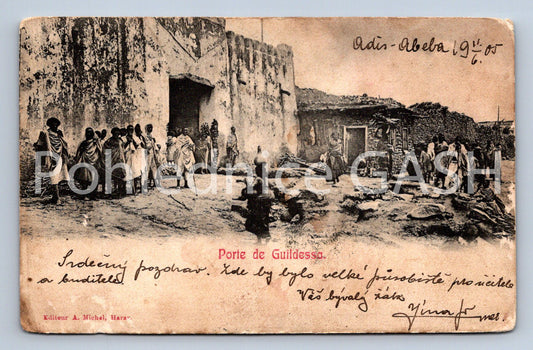 Adis-Abeba 19 11/6. 05
Pohlednice GASH
Porte de Guildessa.
Srdečný pozdrav. Zde by bylo velké působiště pro učitele
a buditele.
Váš bývalý žák
Editeur A. Michel, Harar